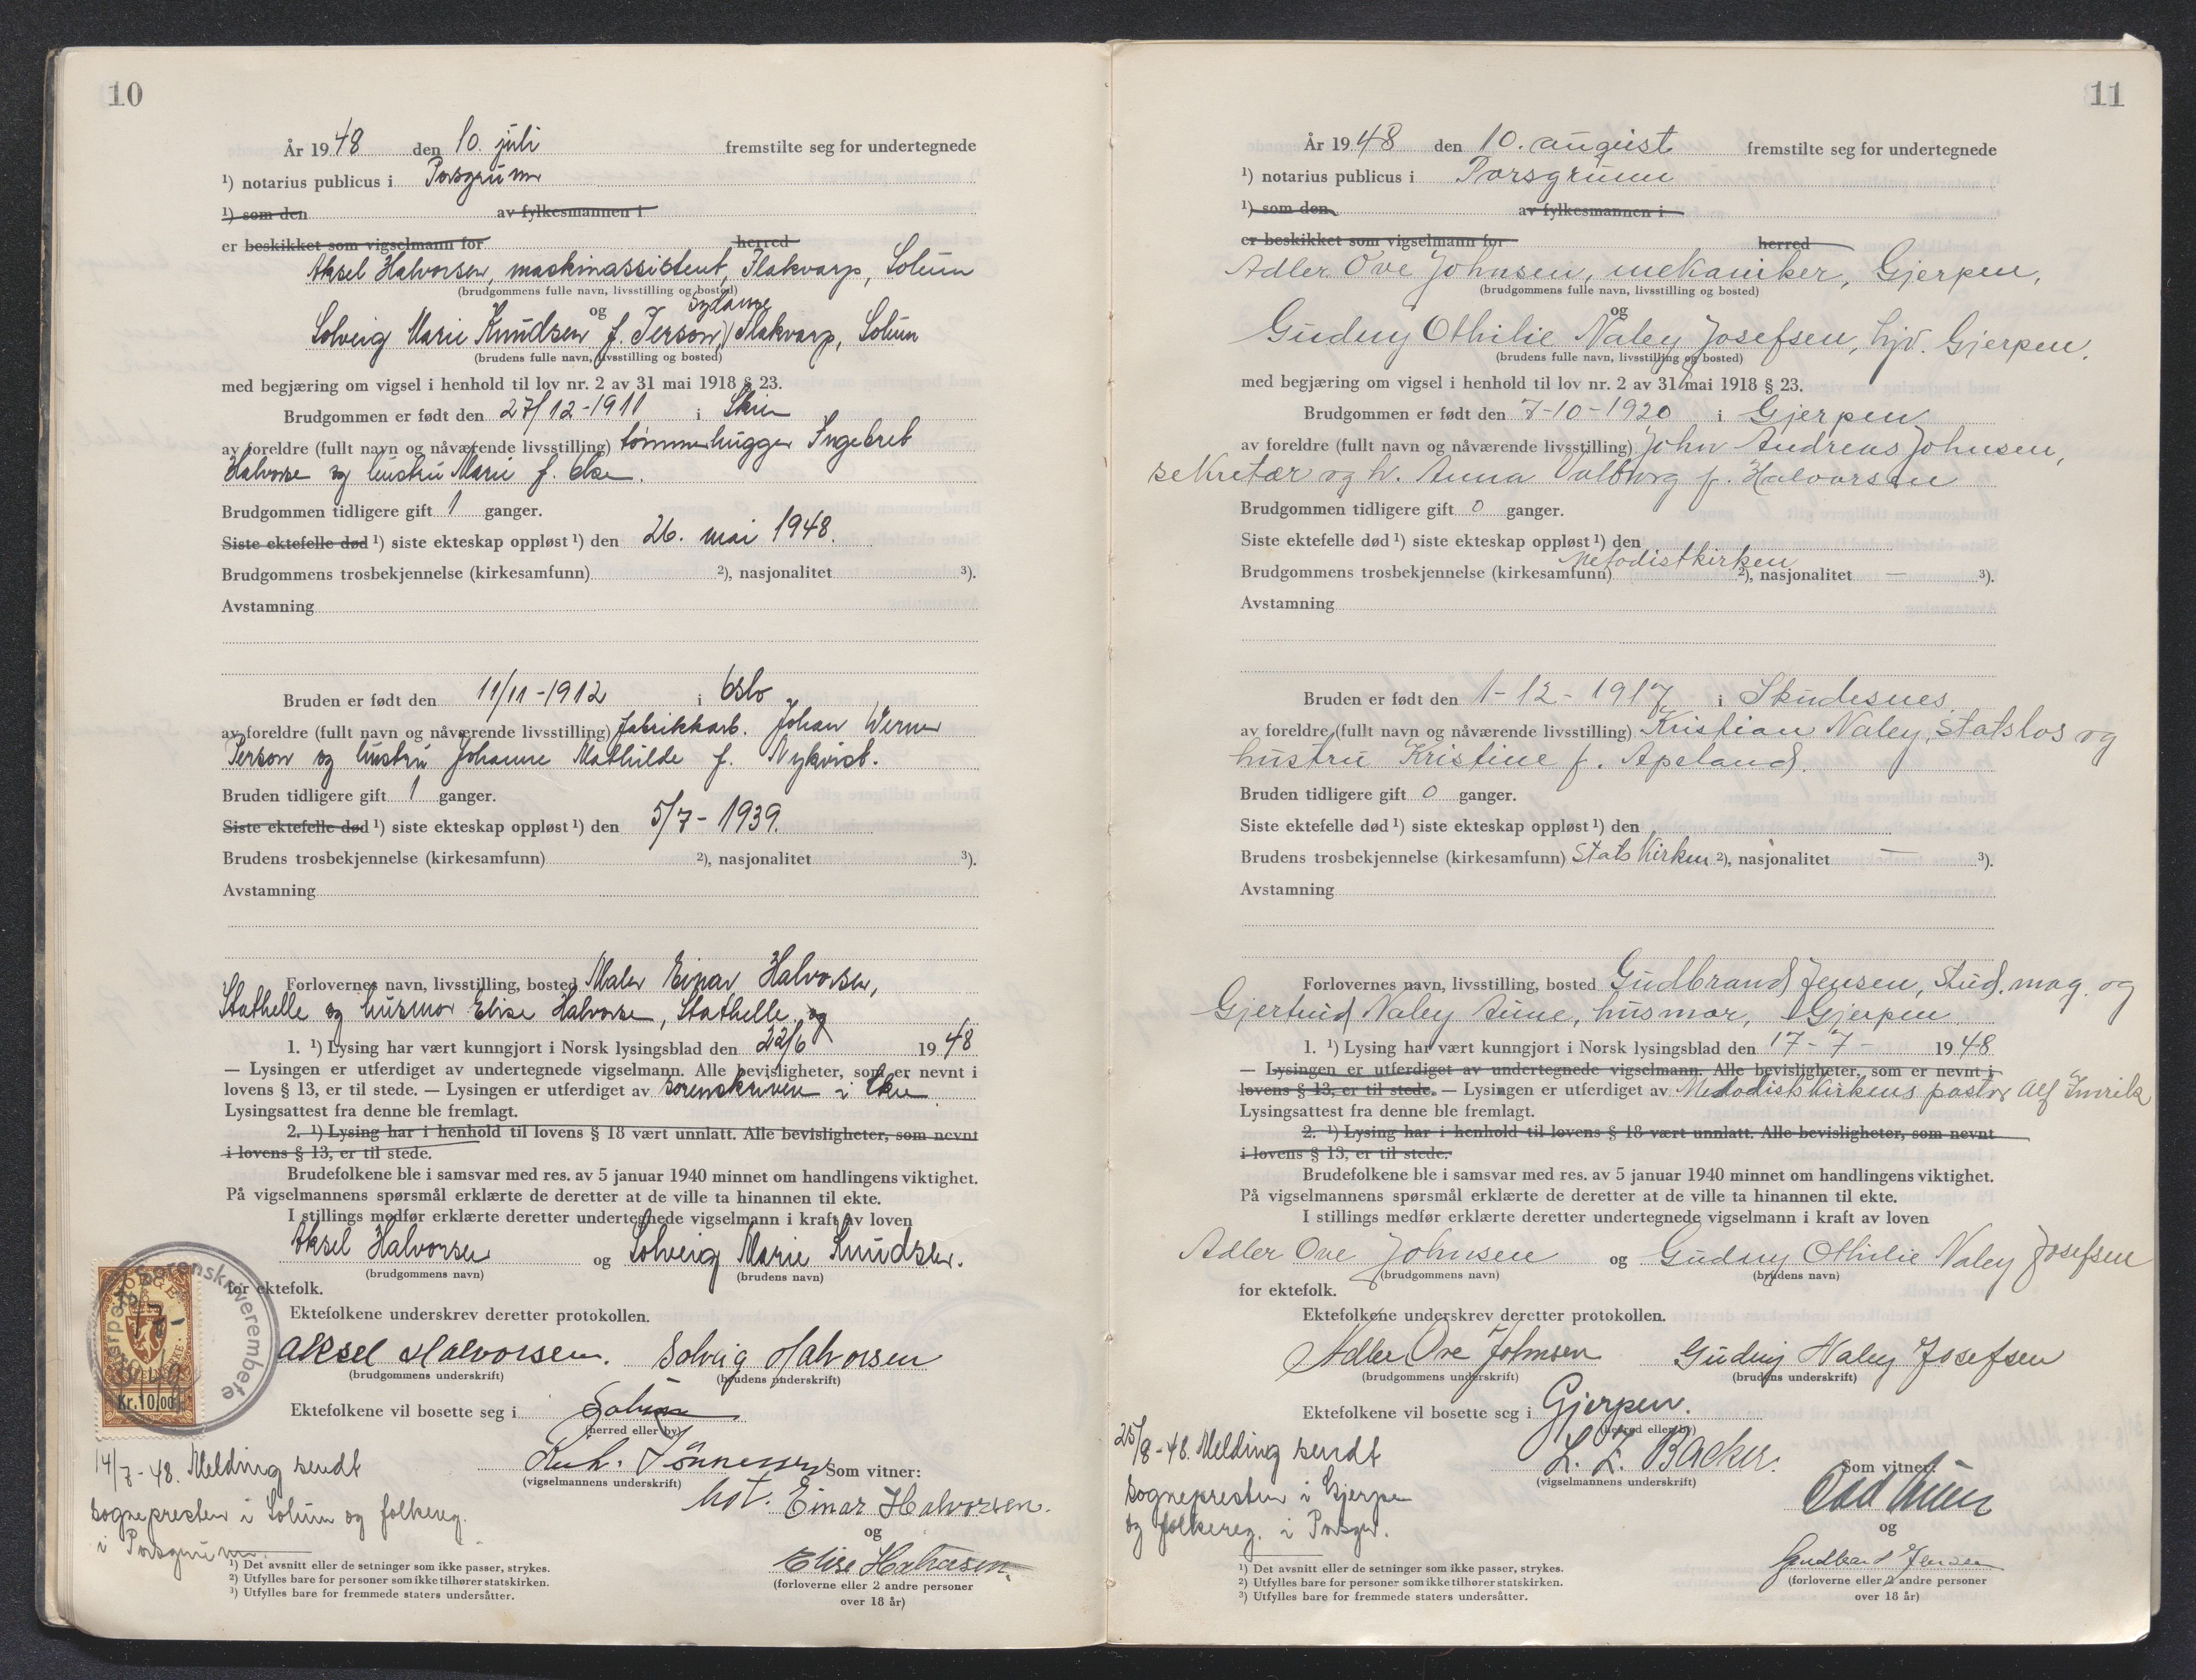 10
År 1948 den 10. juli fremstilte seg for undertegnede
¹) notarius publicus i Porsgrunn
¹) som den av fylkesmannen i
er beskikket som vigselmann for herred
Aksel Halvorsen, maskinassistent, Flakvarp, Solum
(brudgommens fulle navn, livsstilling og bosted)
og
Solveig Marie Knudsen f. Person, Flakvarp, Solum
(brudens fulle navn, livsstilling og bosted)
med begjæring om vigsel i henhold til lov nr. 2 av 31 mai 1918 § 23.
Brudgommen er født den 27/12-1911 i Skien
av foreldre (fullt navn og nåværende livsstilling) tømmerhugger Ingebret
Halvorsen og hustru Marie f. Olsen.
Brudgommen tidligere gift 1 ganger.
Siste ektefelle død ¹) siste ekteskap oppløst ¹) den 26. mai 1948.
Brudgommens trosbekjennelse (kirkesamfunn) ²), nasjonalitet ³).
Avstamning
Bruden er født den 11/11-1912 i Oslo
av foreldre (fullt navn og nåværende livsstilling) fabrikkarb. Johan Werner
Person og hustru Johanne Mathilde f. Nykvist.
Bruden tidligere gift 1 ganger.
Siste ektefelle død ¹) siste ekteskap oppløst ¹) den 5/7-1939.
Brudens trosbekjennelse (kirkesamfunn) ²), nasjonalitet ³).
Avstamning
Forlovernes navn, livsstilling, bosted Maler Einar Halvorsen,
Stathelle og husmor Elise Halvorsen, Stathelle. og
1. ¹) Lysing har vært kunngjort i Norsk lysingsblad den 22/6 1948
— Lysingen er utferdiget av undertegnede vigselmann. Alle bevisligheter, som er nevnt i
lovens § 13, er til stede. — Lysingen er utferdiget av sorenskriveren i
Lysingsattest fra denne ble fremlagt.
2. ¹) Lysing har i henhold til lovens § 18 vært unnlatt. Alle bevisligheter, som nevnt
i lovens § 13, er til stede.
Brudefolkene ble i samsvar med res. av 5 januar 1940 minnet om handlingens viktighet.
På vigselmannens spørsmål erklærte de deretter at de ville ta hinannen til ekte.
I stillings medfør erklærte deretter undertegnede vigselmann i kraft av loven
Aksel Halvorsen og Solveig Marie Knudsen.
(brudgommens navn) (brudens navn)
for ektefolk.
Ektefolkene underskrev deretter protokollen.
Aksel Halvorsen. Solveig Halvorsen
(brudgommens underskrift) (brudens underskrift)
Ektefolkene vil bosette seg i Solum
(herred eller by)
Sorenskriverembete
Kr. 10/00
14/7-48. Melding sendt
sognepresten i Solum og folkereg.
i Porsgrunn.
Tønnessen
(vigselmannens underskrift)
Som vitner:
Einar Halvorsen.
og
Elise Halvorsen.
(forloverne eller 2 andre personer
over 18 år)
¹) Det avsnitt eller de setninger som ikke passer, strykes.
²) Utfylles bare for personer som ikke tilhører statskirken.
³) Utfylles bare for fremmede staters undersåtter.
11
År 1948 den 10. august fremstilte seg for undertegnede
¹) notarius publicus i Porsgrunn
¹) som den av fylkesmannen i
er beskikket som vigselmann for herred
Adler Ove Johnsen, mekaniker, Gjerpen,
(brudgommens fulle navn, livsstilling og bosted)
og
Gudny Othilie Naley Josefsen, hjv. Gjerpen.
(brudens fulle navn, livsstilling og bosted)
med begjæring om vigsel i henhold til lov nr. 2 av 31 mai 1918 § 23.
Brudgommen er født den 7-10-1920 i Gjerpen
av foreldre (fullt navn og nåværende livsstilling) John Andreas Johnsen,
sekretær og h. Anna Valborg f. Halvorsen
Brudgommen tidligere gift 0 ganger.
Siste ektefelle død ¹) siste ekteskap oppløst ¹) den
Brudgommens trosbekjennelse (kirkesamfunn) Metodistkirken ²), nasjonalitet — ³).
Avstamning
Bruden er født den 1-12-1917 i Skudesnes.
av foreldre (fullt navn og nåværende livsstilling) Kristian Naley, Statslos og
hustru Kristine f. Apeland.
Bruden tidligere gift 0 ganger.
Siste ektefelle død ¹) siste ekteskap oppløst ¹) den
Brudens trosbekjennelse (kirkesamfunn) Statskirken ²), nasjonalitet — ³).
Avstamning
Forlovernes navn, livsstilling, bosted Gudbrand Jensen, Stud. mag. og
Gjertrud Naley Aune, husmor, Gjerpen.
1. ¹) Lysing har vært kunngjort i Norsk lysingsblad den 17-7- 1948
— Lysingen er utferdiget av undertegnede vigselmann. Alle bevisligheter, som er nevnt i
lovens § 13, er til stede. — Lysingen er utferdiget av Metodistkirkens pastor Alf
Lysingsattest fra denne ble fremlagt.
2. ¹) Lysing har i henhold til lovens § 18 vært unnlatt. Alle bevisligheter, som nevnt
i lovens § 13, er til stede.
Brudefolkene ble i samsvar med res. av 5 januar 1940 minnet om handlingens viktighet.
På vigselmannens spørsmål erklærte de deretter at de ville ta hinannen til ekte.
I stillings medfør erklærte deretter undertegnede vigselmann i kraft av loven
Adler Ove Johnsen og Gudny Othilie Naley Josefsen
(brudgommens navn) (brudens navn)
for ektefolk.
Ektefolkene underskrev deretter protokollen.
Adler Ove Johnsen Gudny Naley Josefsen
(brudgommens underskrift) (brudens underskrift)
Ektefolkene vil bosette seg i Gjerpen.
(herred eller by)
25/8-48. Melding sendt
sognepresten i Gjerpen
og folkereg. i Porsgr.
Backer.
(vigselmannens underskrift)
Som vitner:
og
Gudbrand Jensen
(forloverne eller 2 andre personer
over 18 år)
¹) Det avsnitt eller de setninger som ikke passer, strykes.
²) Utfylles bare for personer som ikke tilhører statskirken.
³) Utfylles bare for fremmede staters undersåtter.